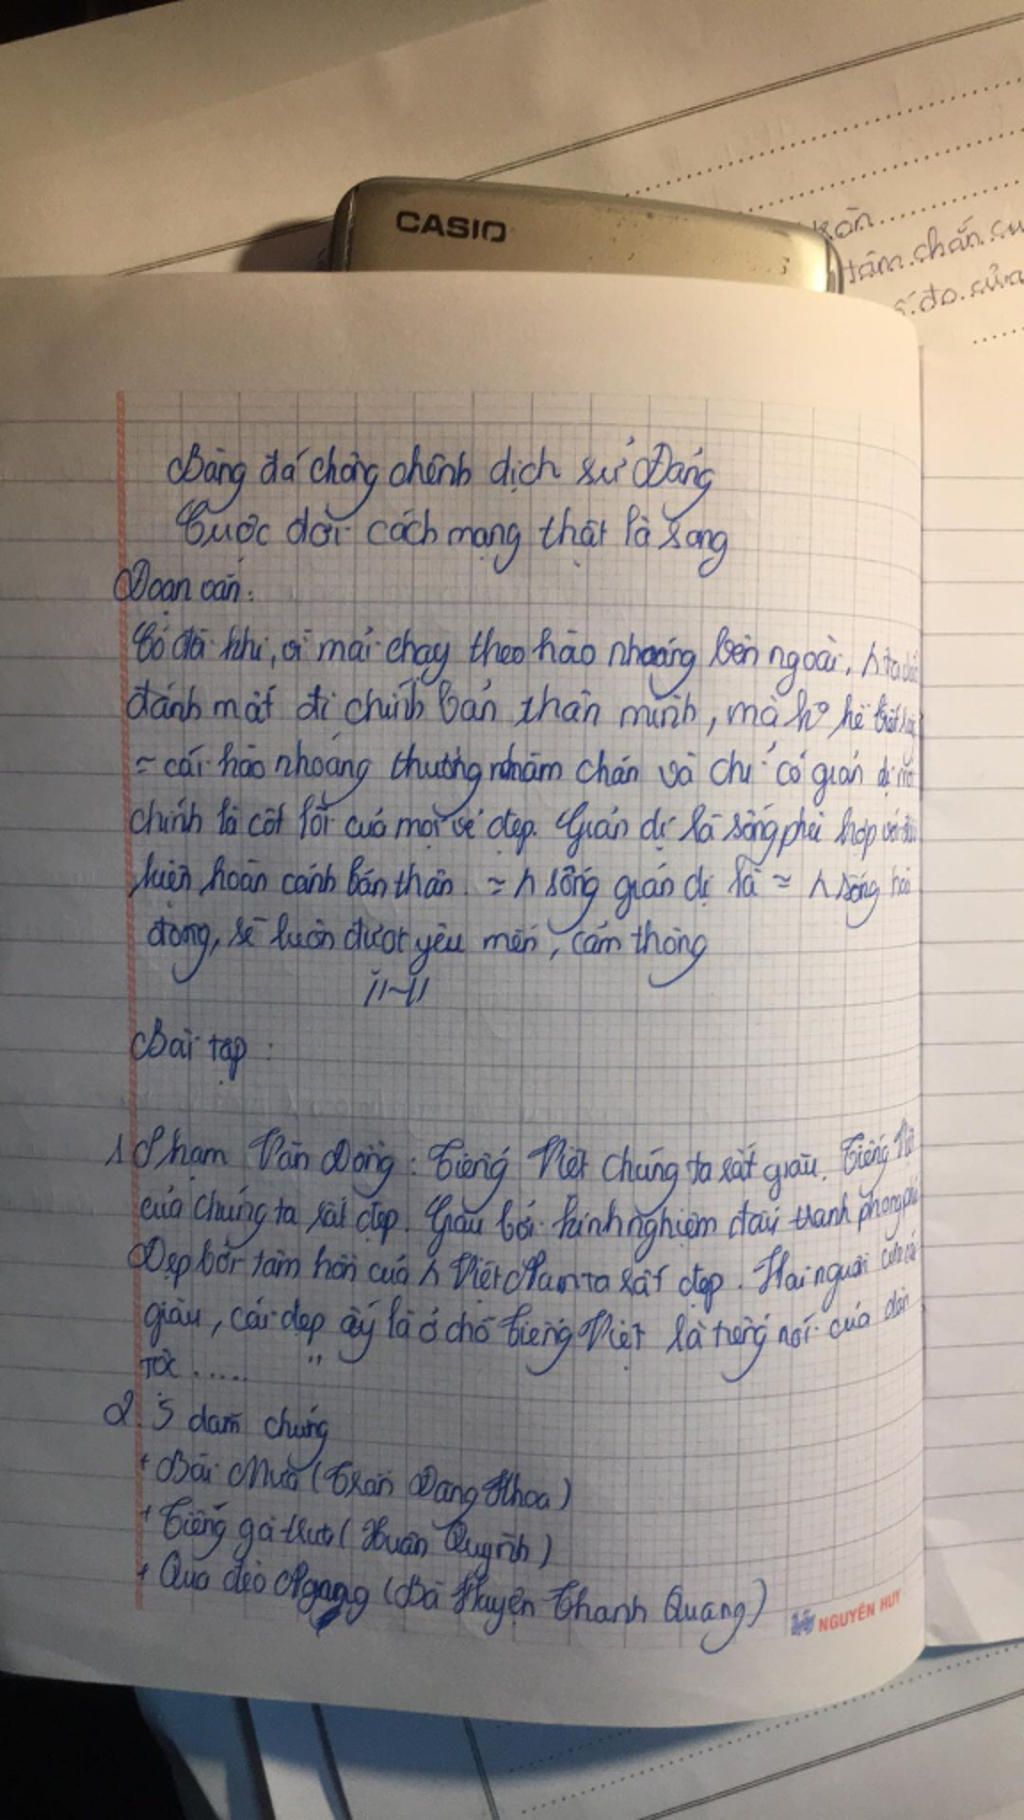 CASIO
tâm.chắn.
đo.sửa
Bàng đá chông chênh dịch sử Đảng
Cuộc đời cách mạng thật là sang
Đoạn văn:
Có đôi khi, vì mải chạy theo hào nhoáng bên ngoài,
đánh mất đi chính bản thân mình, mà ko hề biết
≈ cái hào nhoáng thường nhàm chán và chỉ có giản dị mới
chính là cốt lõi của mọi vẻ đẹp. Giản dị là sống phù hợp với điều
kiện hoàn cảnh bản thân. ≈ n sống giản dị là ≈ n sống hòa
đồng, sẽ luôn được yêu mến, cảm thông
Bài tập :
1 Phạm Văn Đồng : Tiếng Việt chúng ta rất giàu. Tiếng Việt
của chúng ta rất đẹp. Giàu bởi kinh nghiệm đấu tranh phong phú
Đẹp bởi tâm hồn của n Việt Nam ta rất đẹp. Hai nguồn của cái
giàu, cái đẹp ấy là ở chỗ Tiếng Việt là tiếng nói của dân
tộc ..... "
2. 3 dẫn chứng
+ Bài Mưa (Trần Đăng Khoa)
+ Tiếng gà trưa (Xuân Quỳnh)
+ Qua đèo Ngang (Bà Huyện Thanh Quang)
NGUYÊN HUY